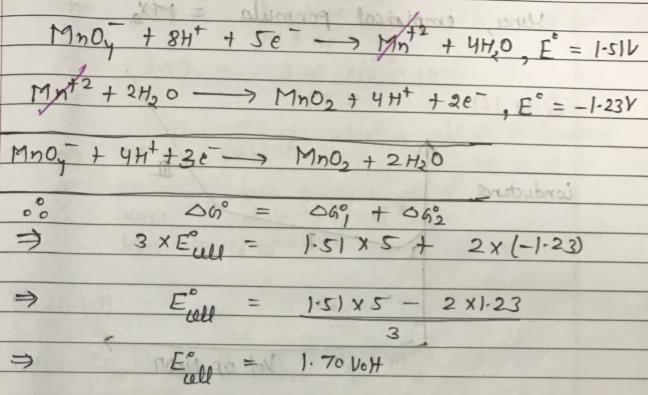 MnO₄⁻ + 8H⁺ + 5e⁻ ⟶ Mn⁺² + 4H₂O, E° = 1.51V
Mn⁺² + 2H₂O ⟶ MnO₂ + 4H⁺ + 2e⁻, E° = -1.23V
MnO₄⁻ + 4H⁺ + 3e⁻ ⟶ MnO₂ + 2H₂O
∴ ΔG° = ΔG°₁ + ΔG°₂
⇒ 3 × E°cell = 1.51 × 5 + 2 × (-1.23)
⇒ E°cell = 1.51 × 5 - 2 × 1.23
3
⇒ E°cell = 1.70 Volt